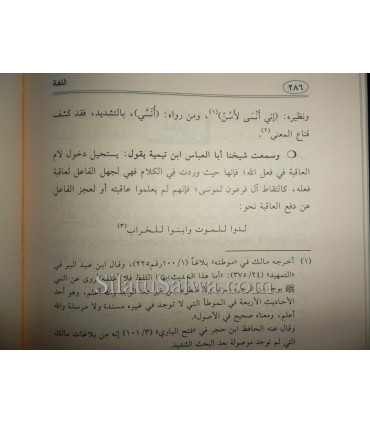 ٢٨٦
اللغة
ونظيره: (إني أَنْسَى لأَسُنَّ)(١)، ومن رواه: (أُنَسَّى)، بالتشديد، فقد كشف
قناع المعنى(٢).
❍ وسمعت شيخنا أبا العباس ابن تيمية يقول: يستحيل دخول لام
العاقبة في فعل الله؛ فإنها حيث وردت في الكلام فهي لجهل الفاعل لعاقبة
فعله، كالتقاط آل فرعون لموسى؛ فإنهم لم يعلموا عاقبته أو لعجز الفاعل
عن دفع العاقبة نحو:
لدوا للموت وابنوا للخراب(٣)
(١) أخرجه مالك في «موطئه» بلاغاً (١/١٠٠رقم٢٢٥)، وقال ابن عبد البر في
«التمهيد» (٣٧٥/٢٤): «أما هذا الحديث بهذا اللفظ فلا أعلمه يروى عن النبي
ﷺ بوجه
الأحاديث الأربعة في الموطأ التي لا توجد في غيره مسندة ولا مرسلة والله
أعلم، ومعناه صحيح في الأصول».
وقال عنه الحافظ ابن حجر في «فتح الباري» (١٠١/٣) إنه من بلاغات مالك
التي لم توجد موصولة بعد البحث الشديد.
SifatuSafwa.com